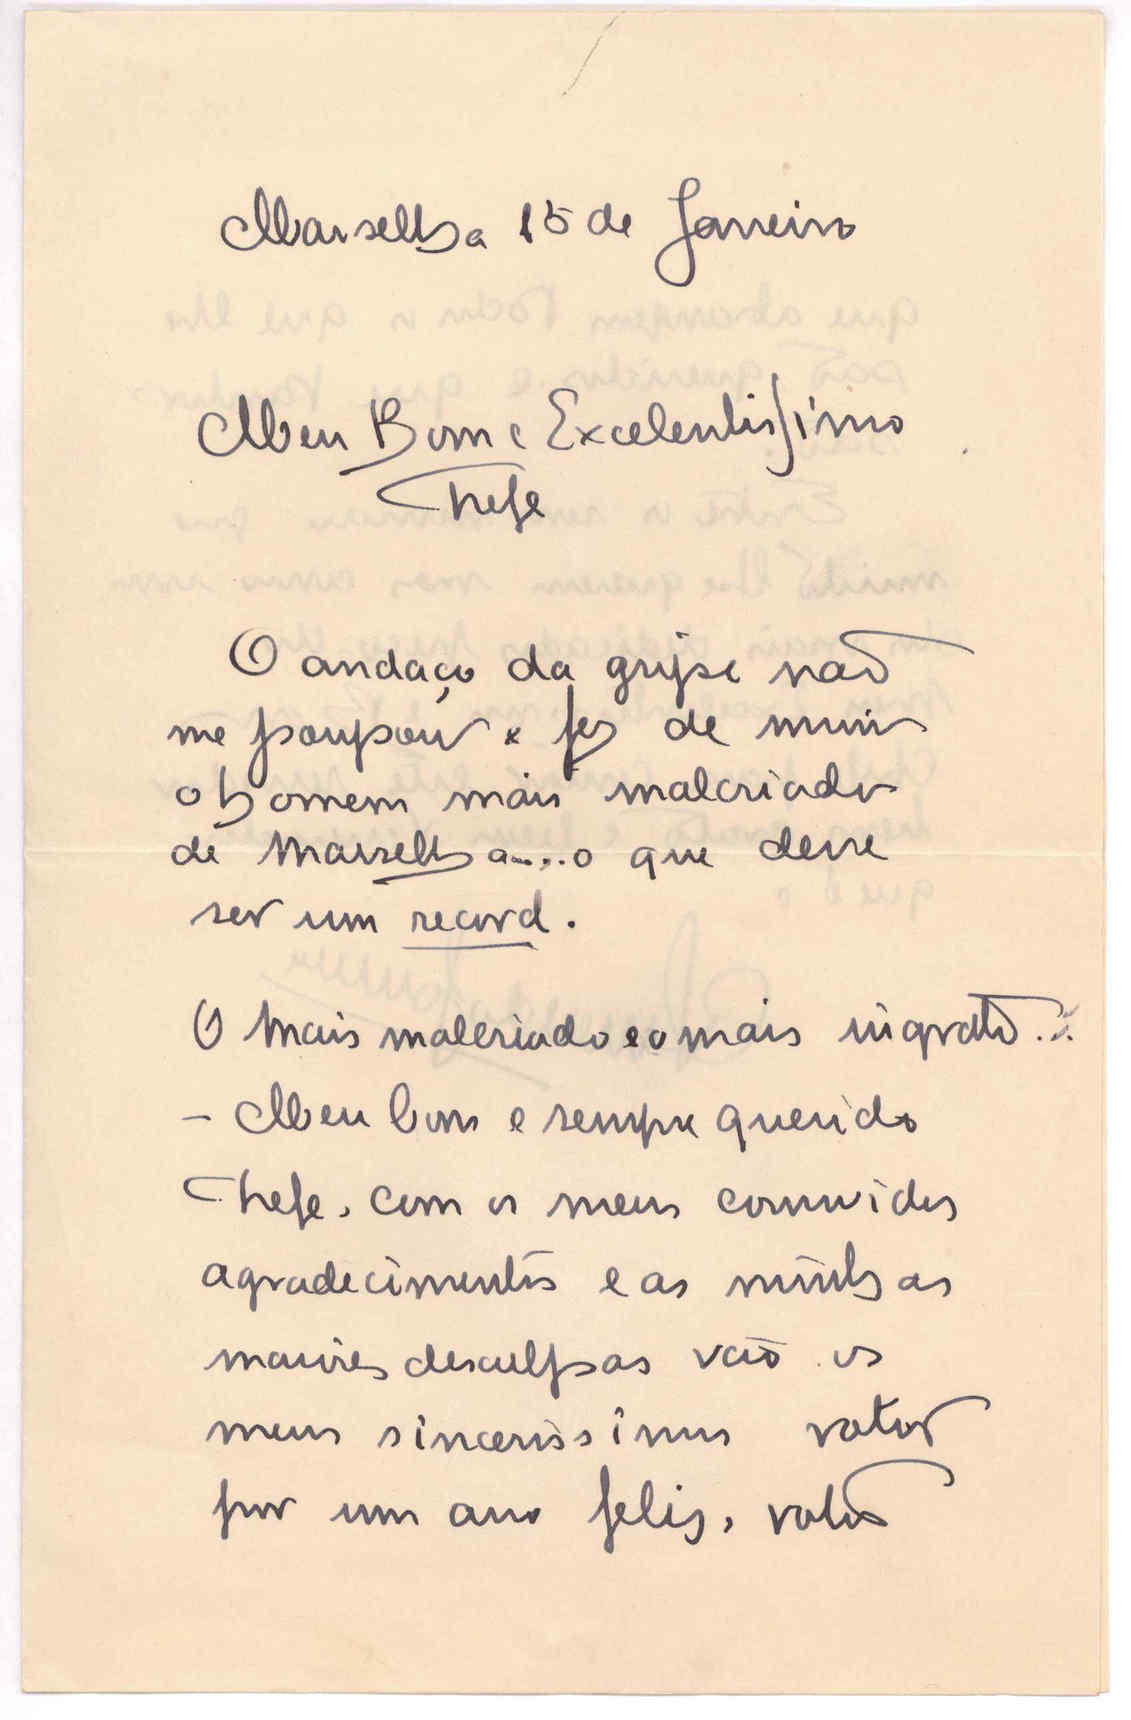 Marselha 15 de Janeiro
Meu Bom e Excelentissimo
Chefe
O andaço da gripe não
me poupou e fez de mim
o homem mais malcriado
de Marselha.... o que deve
ser um record.
O mais malcriado e o mais ingrato...
– Meu bom e sempre querido
Chefe, com os meus comuvidos
agradecimentos e as minhas
maiores desculpas vão os
meus sincerissimos votos
por um ano felis, votos